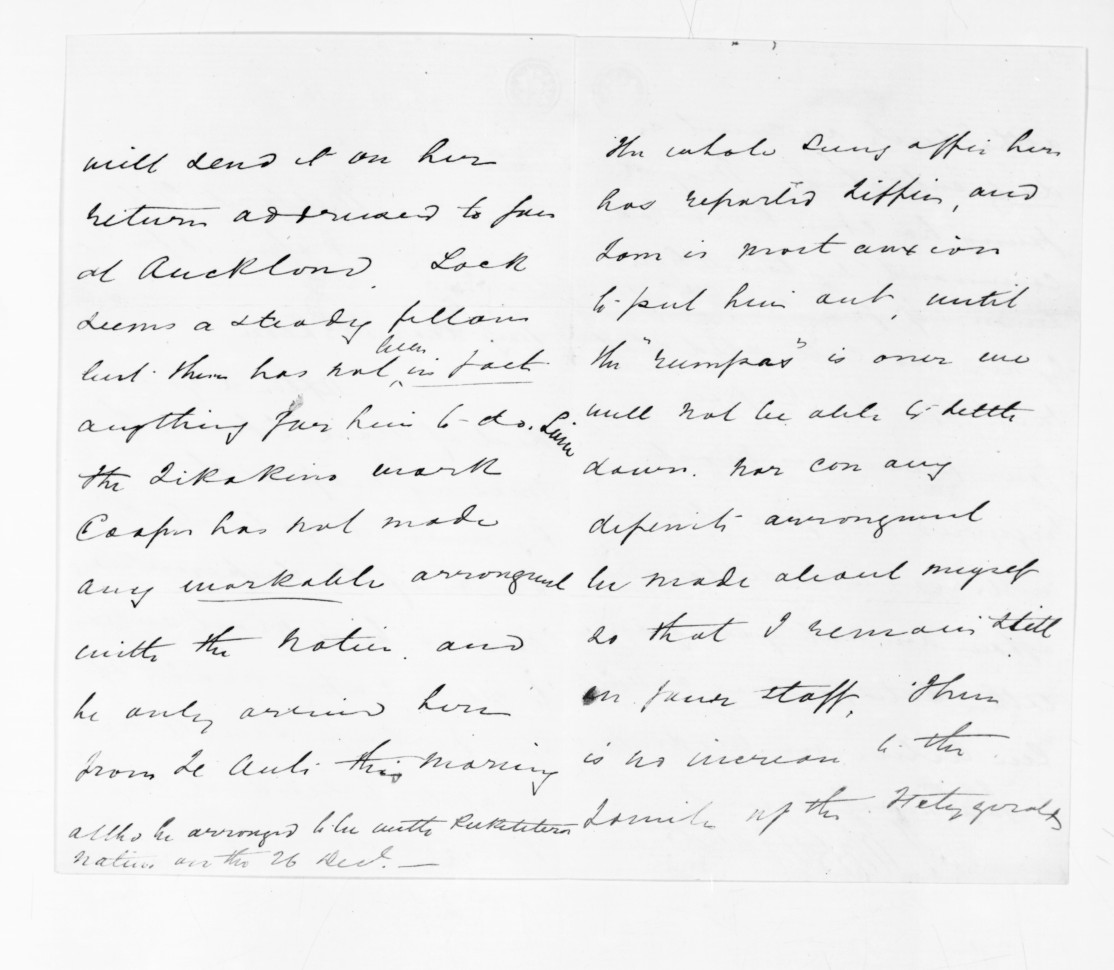 will send it on her
return addressed to you
at Auckland. Lock
seems a steady fellow
but there has not been in fact
anything for him to do. Since
the Tikokino work
Cooper has not made
any workable arrangement
with the Natives. and
he only arrived here
from Te Aute this morning
altho he arranged to be with
natives on the 26 Decr. —
The whole Survey office here
has reported Tiffin, and
Dom is most anxious
to put him out, until
the "rumpas" is over we
will not be able to settle
down. nor can any
definite arrangement
be made about myself
so that I remain still
on your staff. There
is no increase to the
family of the Fitzgeralds